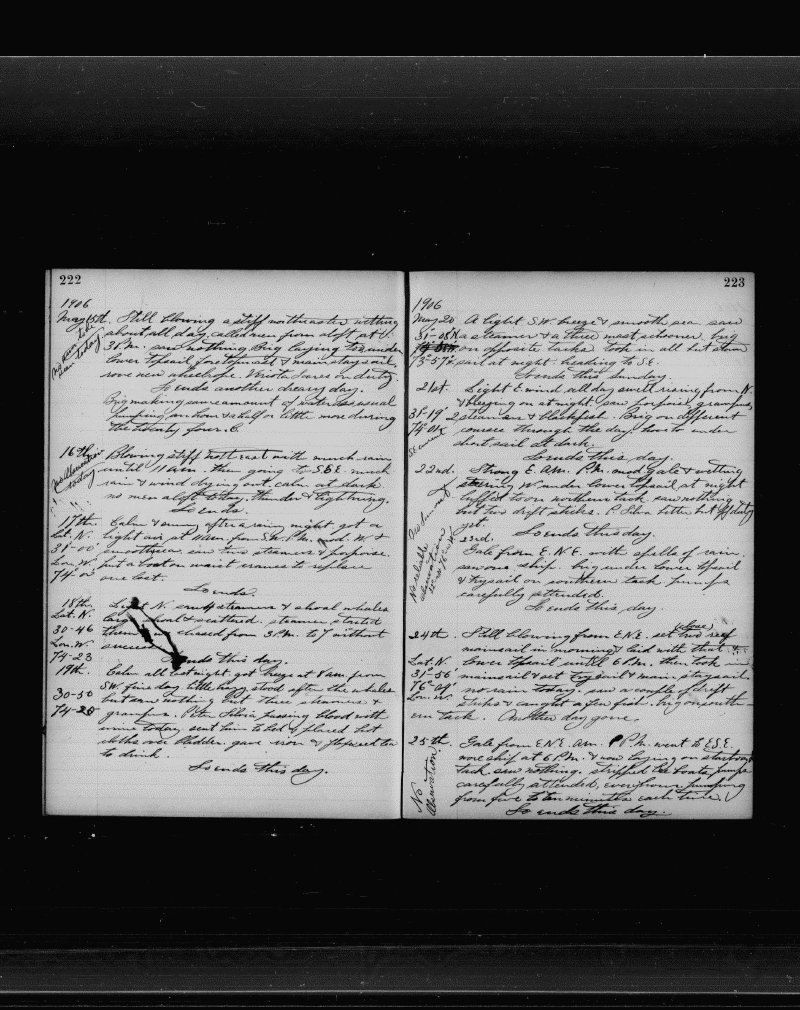 222
1906
May 15th. Still blowing a stiff northeaster wetting
about all day. called men from aloft at
3 P.M. saw nothing. Brig laying to under
lower topsail foretopmast & main staysail.
rove new wheelrope. Viriota Soares on duty.
So ends another dreary day.
Brig making same amount of water as usual
pumping an hour & a half or little more during
the twenty four. C.
16th. Blowing stiff with much rain
No observation today
until 11 A.M. then going to S.S.E. much
rain & wind dying out. calm at dark
no men aloft today. thunder & lightning.
So ends.
17th. Calm & sunny after a rainy night. got a
Lat. N. light air at 10 A.M. from S.W. P.M. mod. W. &
31-00 smooth sea. saw two steamers & porpoise.
Lon. W. put a boat on waist cranes to replace
74-03 one lost.
So ends.
18th. Light N. saw 4 steamers & shoal whales
Lat. N. large shoal & scattered. steamer started
30-46 them chased from 3 P.M. to 7 without
Lon. W. success
74-23 So ends this day.
19th. Calm all last night got breeze at 8 A.M. from
S.W. fine day stood after the whales
30-50 but saw nothing but three steamers &
74-25 grampus. Peter Silvia passing blood with
urine today. sent him to bed & placed hot
cloths over bladder. gave iron & flaxseed tea
to drink.
So ends this day.
223
1906
May 20 A light S.W. breeze & smooth sea. saw
31-08 N a steamer & a three mast schooner. brig
on opposite tacks. took in all but stern
73-57 sail at night. heading to S.E.
So ends this Sunday.
21st. Light E wind all day swell rising from N.
& breezing on at night. saw porpoise, grampus,
31-19 2 steamers & blackfish. Brig on different
74-01 courses through the day. hove to under
short sail at dark.
So ends this day.
22nd. Strong E. A.M. P.M. mod gale & wetting
steering W. under lower topsail. at night
luffed to on northern tack. saw nothing
but two drift sticks. P. Silva better but off duty
yet. So ends this day.
23rd.
Gale from E.N.E. with spells of rain.
No reliable observation
saw one ship. brig under lower topsail
& trysail on southern tack. pumps
carefully attended.
So ends this day.
(close)
24th. Still blowing from E.N.E. set two reef
mainsail in morning & laid with that &
Lat. N. lower topsail until 6 P.M. then took in
31-56 mainsail & set trysail & main staysail.
76-04 no rain today. saw a couple of drift
Lon. W. sticks & caught a few fish. brig on south-
ern tack. Another day gone.
25th. Gale from E.N.E. A.M. P.M. went to E.S.E.
wore ship at 6 P.M. & now laying on starboard
No observation
tack. saw nothing. stripped the boats, pumps
carefully attended, every hour, pumping
from five to ten minutes each time.
So ends this day.